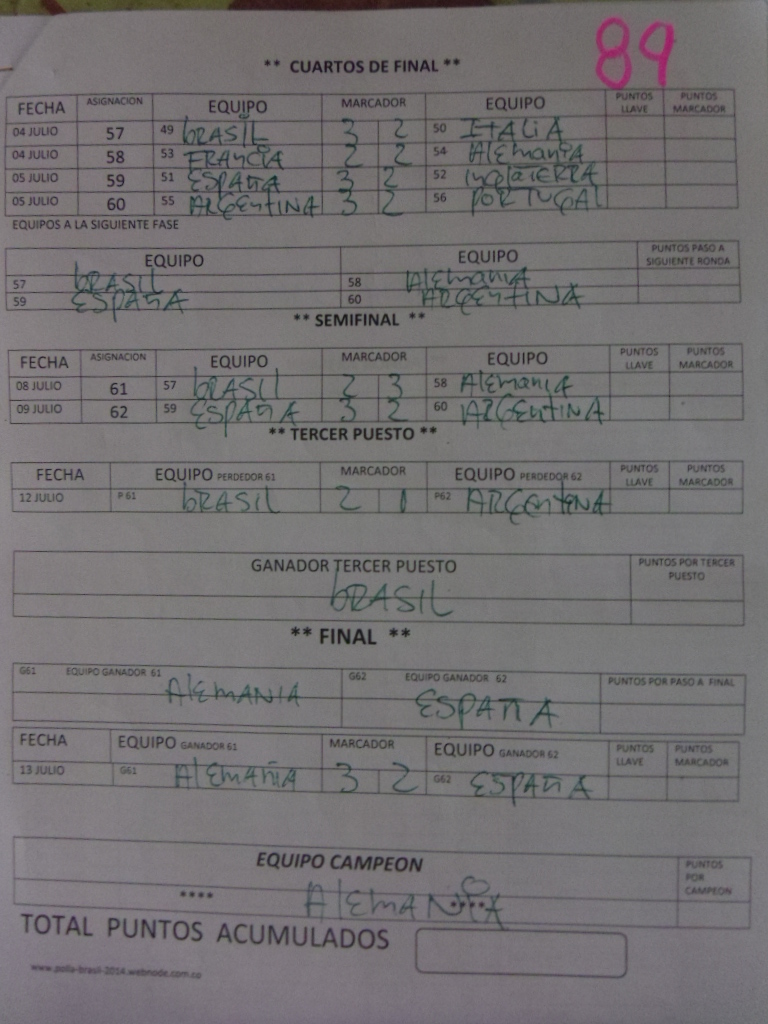 89
** CUARTOS DE FINAL **
FECHA ASIGNACION EQUIPO MARCADOR EQUIPO PUNTOS LLAVE PUNTOS MARCADOR
04 JULIO 57 49 bRASIL 3 2 50 ITALIA
04 JULIO 58 53 FRANCIA 2 2 54 Alemania
05 JULIO 59 51 ESPAÑA 3 2 52 inglaTERRA
05 JULIO 60 55 ARGENTINA 3 2 56 PORTUGAL
EQUIPOS A LA SIGUIENTE FASE
EQUIPO EQUIPO PUNTOS PASO A SIGUIENTE RONDA
57 bRASIL 58 Alemania
59 ESPAÑA 60 ARGENTINA
** SEMIFINAL **
FECHA ASIGNACION EQUIPO MARCADOR EQUIPO PUNTOS LLAVE PUNTOS MARCADOR
08 JULIO 61 57 bRASIL 2 3 58 Alemania
09 JULIO 62 59 ESPAÑA 3 2 60 ARGENTINA
** TERCER PUESTO **
FECHA EQUIPO PERDEDOR 61 MARCADOR EQUIPO PERDEDOR 62 PUNTOS LLAVE PUNTOS MARCADOR
12 JULIO P 61 bRASIL 2 1 P62 ARGENTINA
GANADOR TERCER PUESTO PUNTOS POR TERCER PUESTO
bRASIL
** FINAL **
G61 EQUIPO GANADOR 61 G62 EQUIPO GANADOR 62 PUNTOS POR PASO A FINAL
AlEMANIA ESPAÑA
FECHA EQUIPO GANADOR 61 MARCADOR EQUIPO GANADOR 62 PUNTOS LLAVE PUNTOS MARCADOR
13 JULIO G61 AlEMAÑIA 3 2 G62 ESPAÑA
EQUIPO CAMPEON PUNTOS POR CAMPEON
**** AlEMANIA
TOTAL PUNTOS ACUMULADOS
www.polla-brasil-2014.webnode.com.co